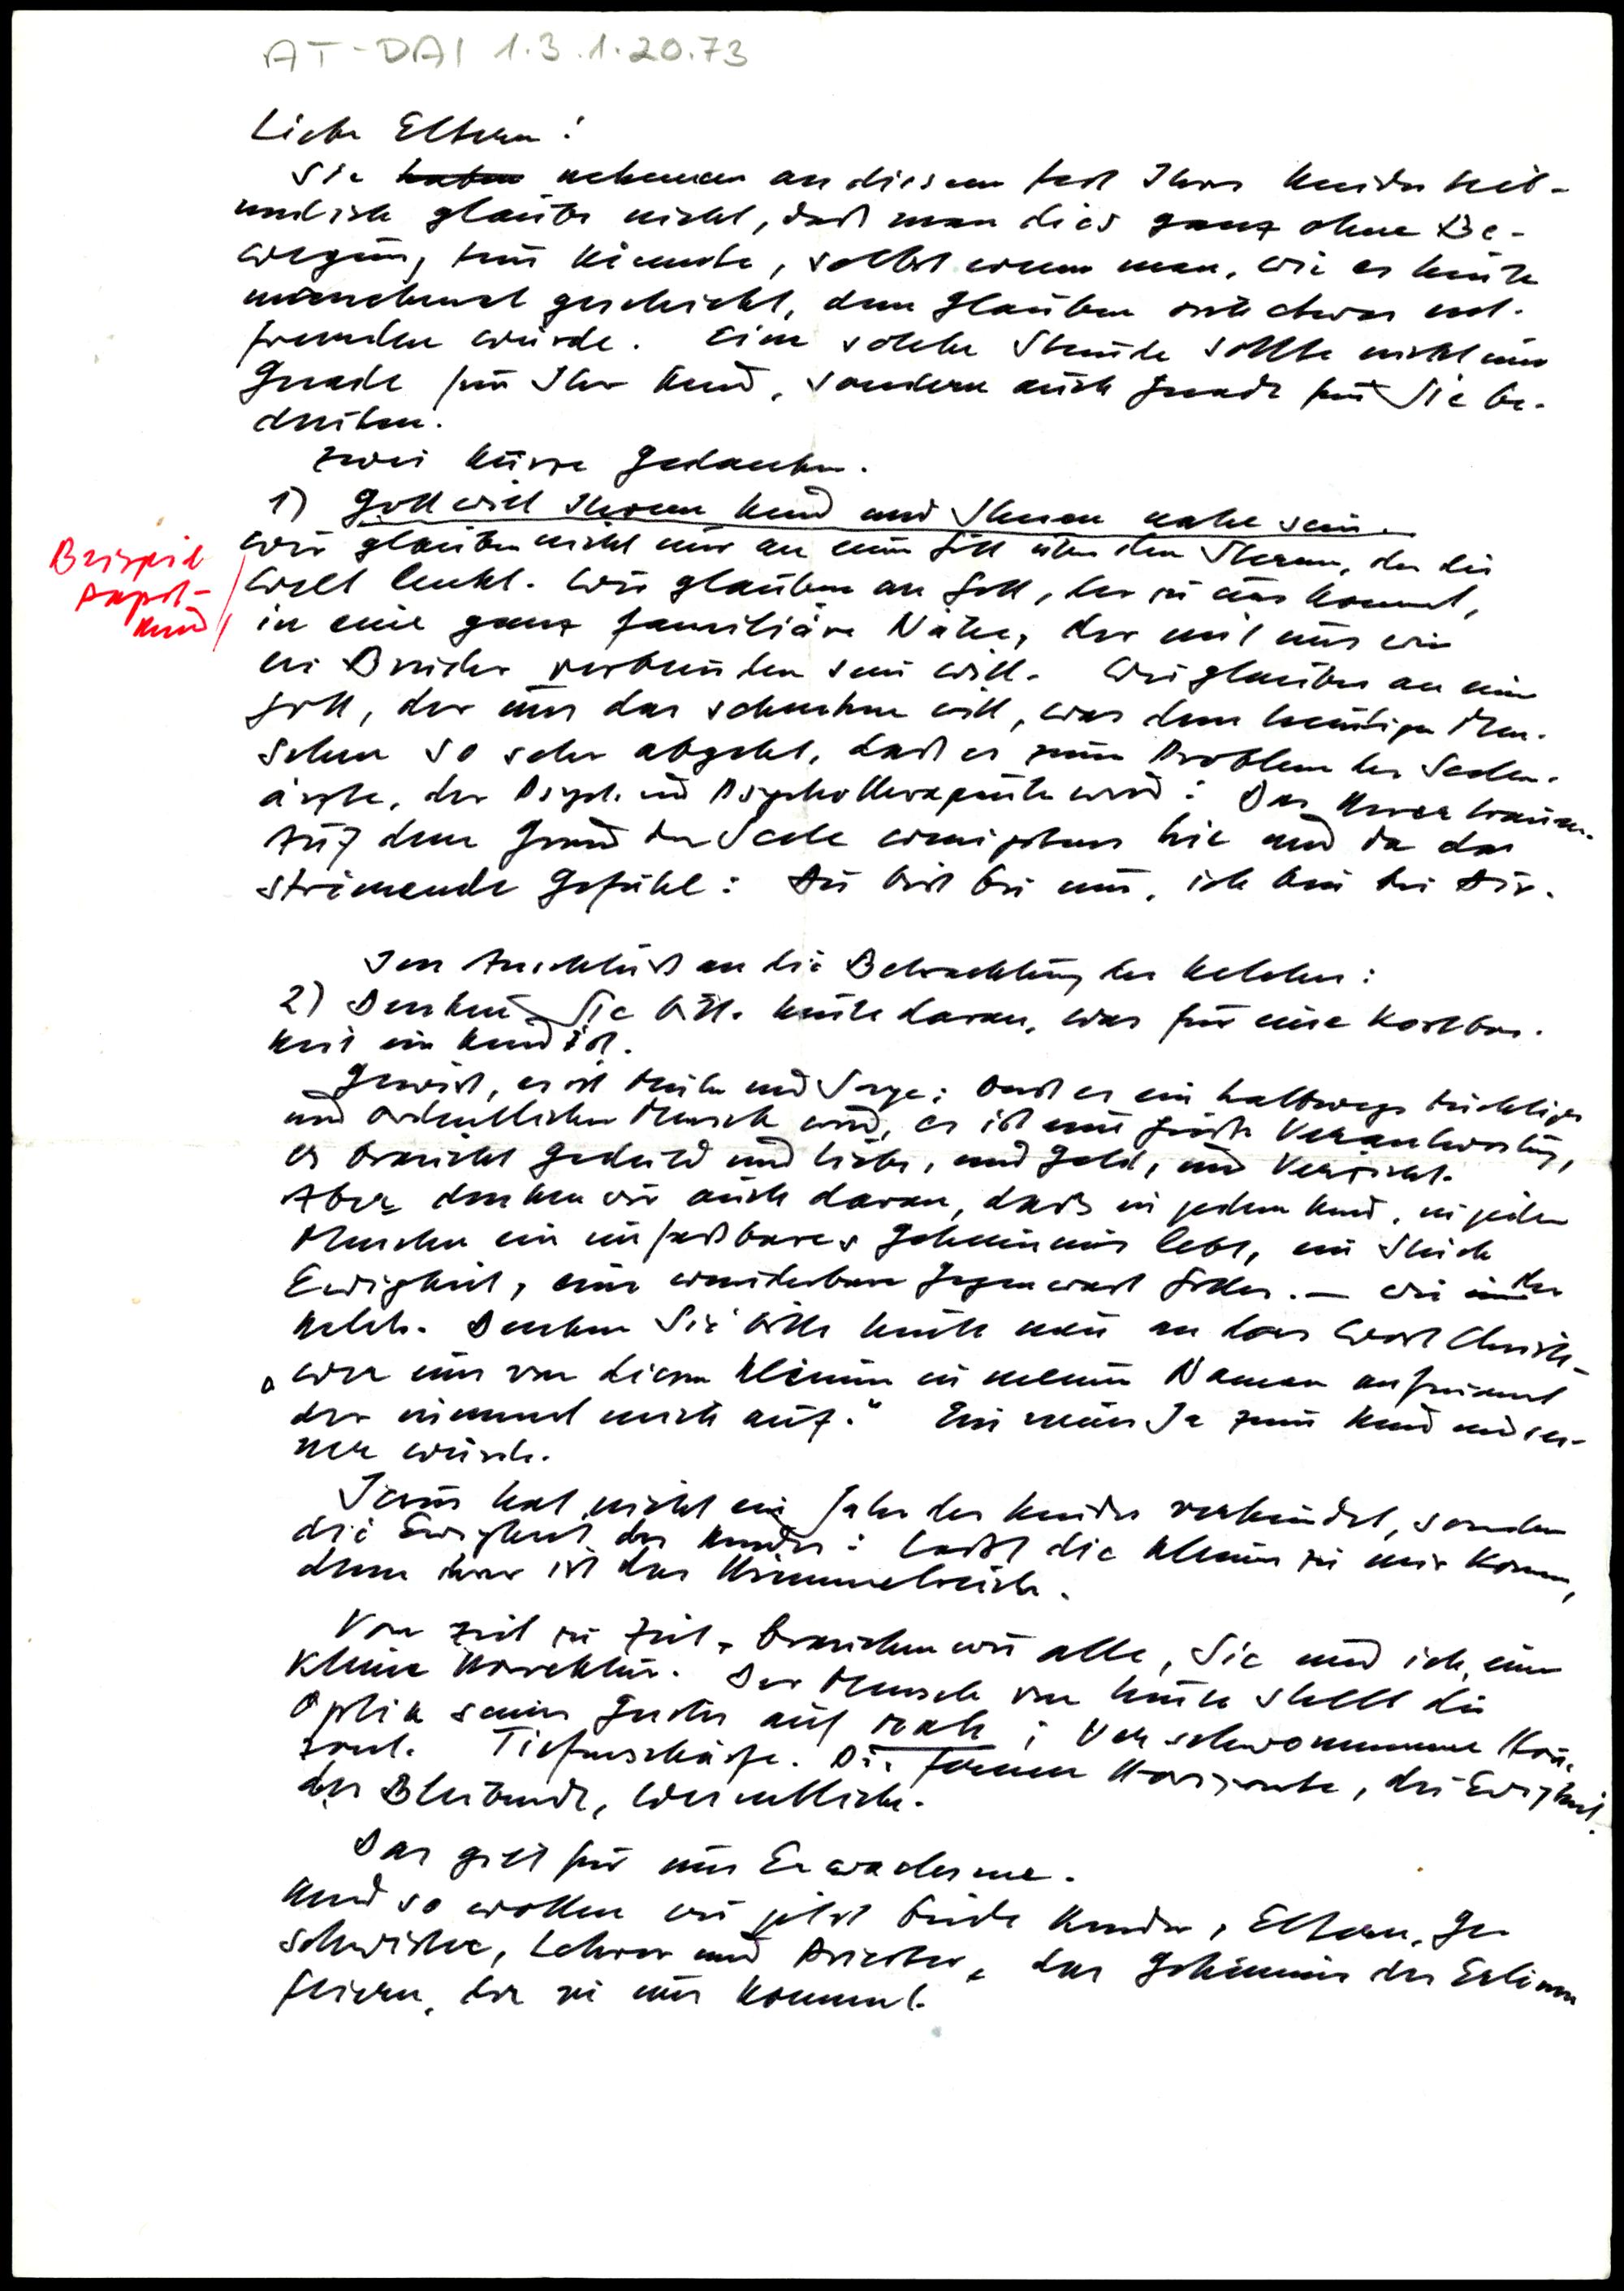 AT-DAI 1.3.1.20.73
Liebe Eltern!
Sie haben nehmen an diesem Fest Ihres Kindes teil -
und ich glaube nicht, daß man dies ganz ohne Be-
wegung tun könnte, selbst wenn man, wie es heute
manchmal geschieht, dem Glauben sich etwas ent-
fremden würde. Eine solche Stunde sollte nicht nur
Gnade für Ihr Kind, sondern auch Gnade für Sie be-
deuten.
Zwei kurze Gedanken.
1) Gott will Ihrem Kind und Ihnen nahe sein.
Beispiel
Papst-
Kind
Wir glauben nicht nur an einen Gott über den Sternen, der die
Welt lenkt. Wir glauben an Gott, der zu uns kommt,
in eine ganz familiäre Nähe, der mit uns wie
ein Bruder verbunden sein will. Wir glauben an einen
Gott, der uns das schenken will, was dem heutigen Men-
schen so sehr abgeht, daß es zum Problem der Seelen-
ärzte, der Psych. und Psychotherapeuten wird: Das Urvertrauen.
Auf dem Grund der Seele wenigstens hie und da das
strömende Gefühl: Du bist bei mir, ich bin bei Dir.
Im Anschluß an die Betrachtung des Kelches:
2) Denken Sie bitte heute daran, was für eine Kostbar-
keit ein Kind ist.
Gewiß, es ist Mühe und Sorge: daß es ein halbwegs tüchtiger
und ordentlicher Mensch wird, es ist eine große Verantwortung,
es braucht Geduld und Liebe, und Geld, und Verzicht.
Aber denken wir auch daran, daß in jedem Kind, in jedem
Menschen ein unfaßbares Geheimnis lebt, ein Stück
Ewigkeit, eine wunderbare Gegenwart Gottes. - Wie im der
Kelch. Denken Sie bitte heute neu an das Wort Christi -
"Wer eines von diesen Kleinen in meinem Namen aufnimmt
der nimmt mich auf." Ein neues Ja zum Kind und sei-
ner Würde.
Jesus hat nicht ein Jahr des Kindes verkündet, sondern
die Ewigkeit des Kindes: Laßt die Kleinen zu mir kommen,
denn ihrer ist das Himmelreich.
Von Zeit zu Zeit brauchen wir alle, Sie und ich, eine
kleine Korrektur. Der Mensch von heute stellt die
Optik seines Geistes auf nah; verschwommene Hori-
zont. Tiefenschärfe. Die fernen Horizonte, die Ewigkeit.
das Bleibende, Wesentliche.
Das gilt für uns Erwachsene.
Und so wollen wir jetzt beide Kinder, Eltern, Ge-
schwister, Lehrer und Priester, das Geheimnis des Erlösers
feiern, der zu uns kommt.